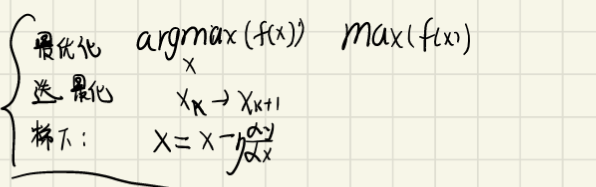 最优化 argmax(f(x)) max(f(x))
x
迭 最化 xₖ → xₖ₊₁
梯下: x = x - η dy/dx